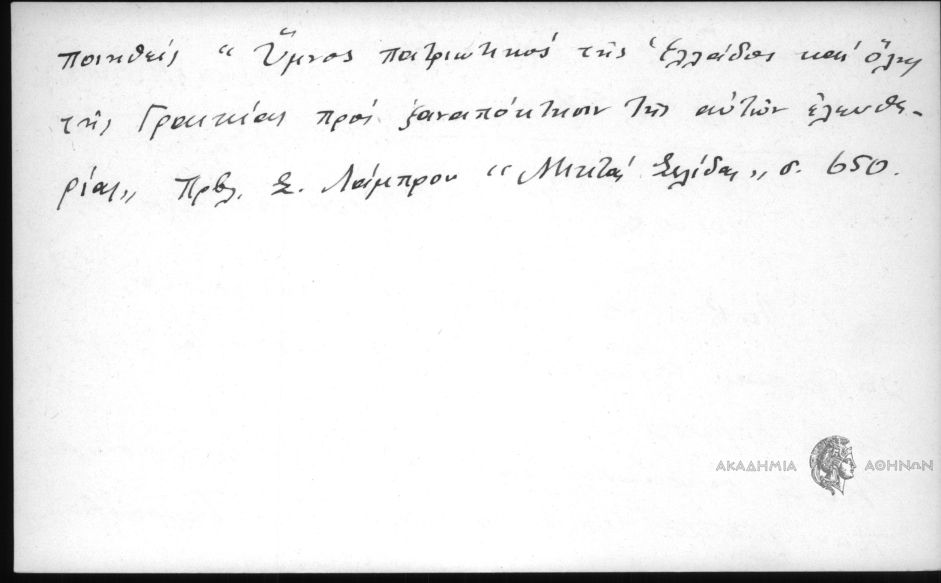 ποιηθείς “ Ὕμνος πατριωτικός τῆς Ἑλλάδος καί ὅλης
τῆς Γραικίας πρός ξαναπόκτησιν τῆς αὐτῶν ἐλευθε-
ρίας„ Πρβλ. Σ. Λάμπρου “ Μικταί Σελίδες „ σ. 650.
ΑΚΑΔΗΜΙΑ ΑΘΗΝΩΝ